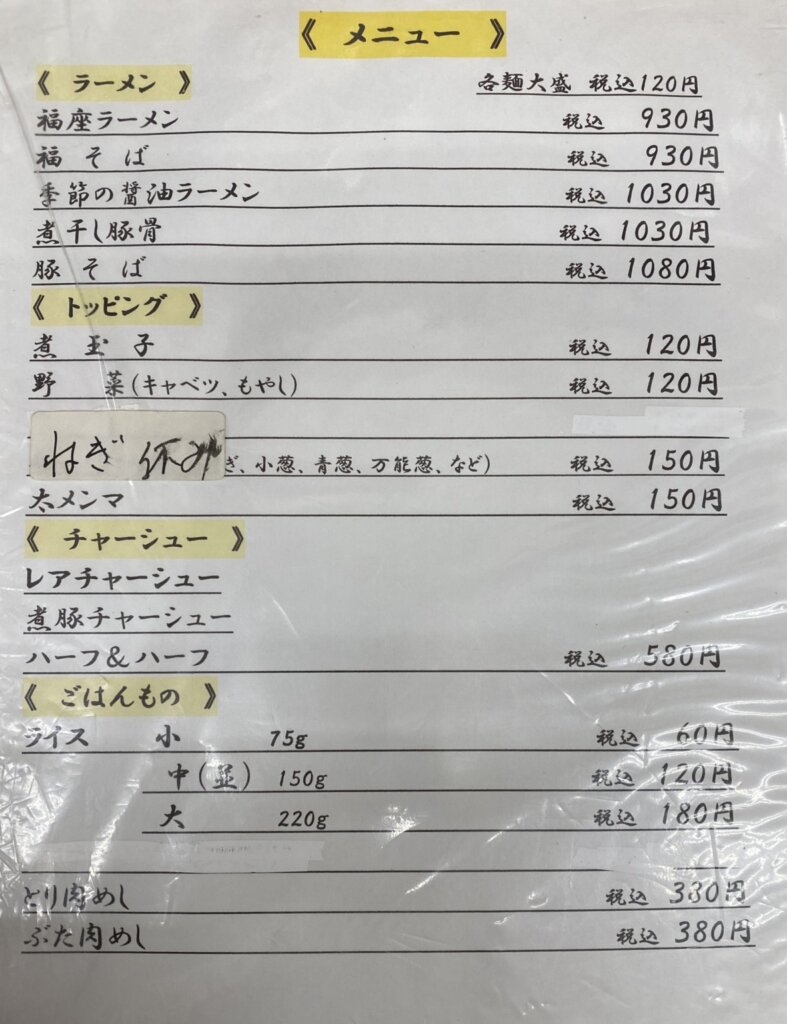 《 メニュー 》
《 ラーメン 》 各麺大盛 税込120円
福座ラーメン 税込 930円
福そば 税込 930円
季節の醤油ラーメン 税込 1030円
煮干し豚骨 税込 1030円
豚そば 税込 1080円
《 トッピング 》
煮玉子 税込 120円
野菜(キャベツ、もやし) 税込 120円
ねぎ 休み ぎ、小葱、青葱、万能葱、など) 税込 150円
太メンマ 税込 150円
《 チャーシュー 》
レアチャーシュー
煮豚チャーシュー
ハーフ&ハーフ 税込 580円
《 ごはんもの 》
ライス 小 75g 税込 60円
中(並) 150g 税込 120円
大 220g 税込 180円
とり肉めし 税込 380円
ぶた肉めし 税込 380円